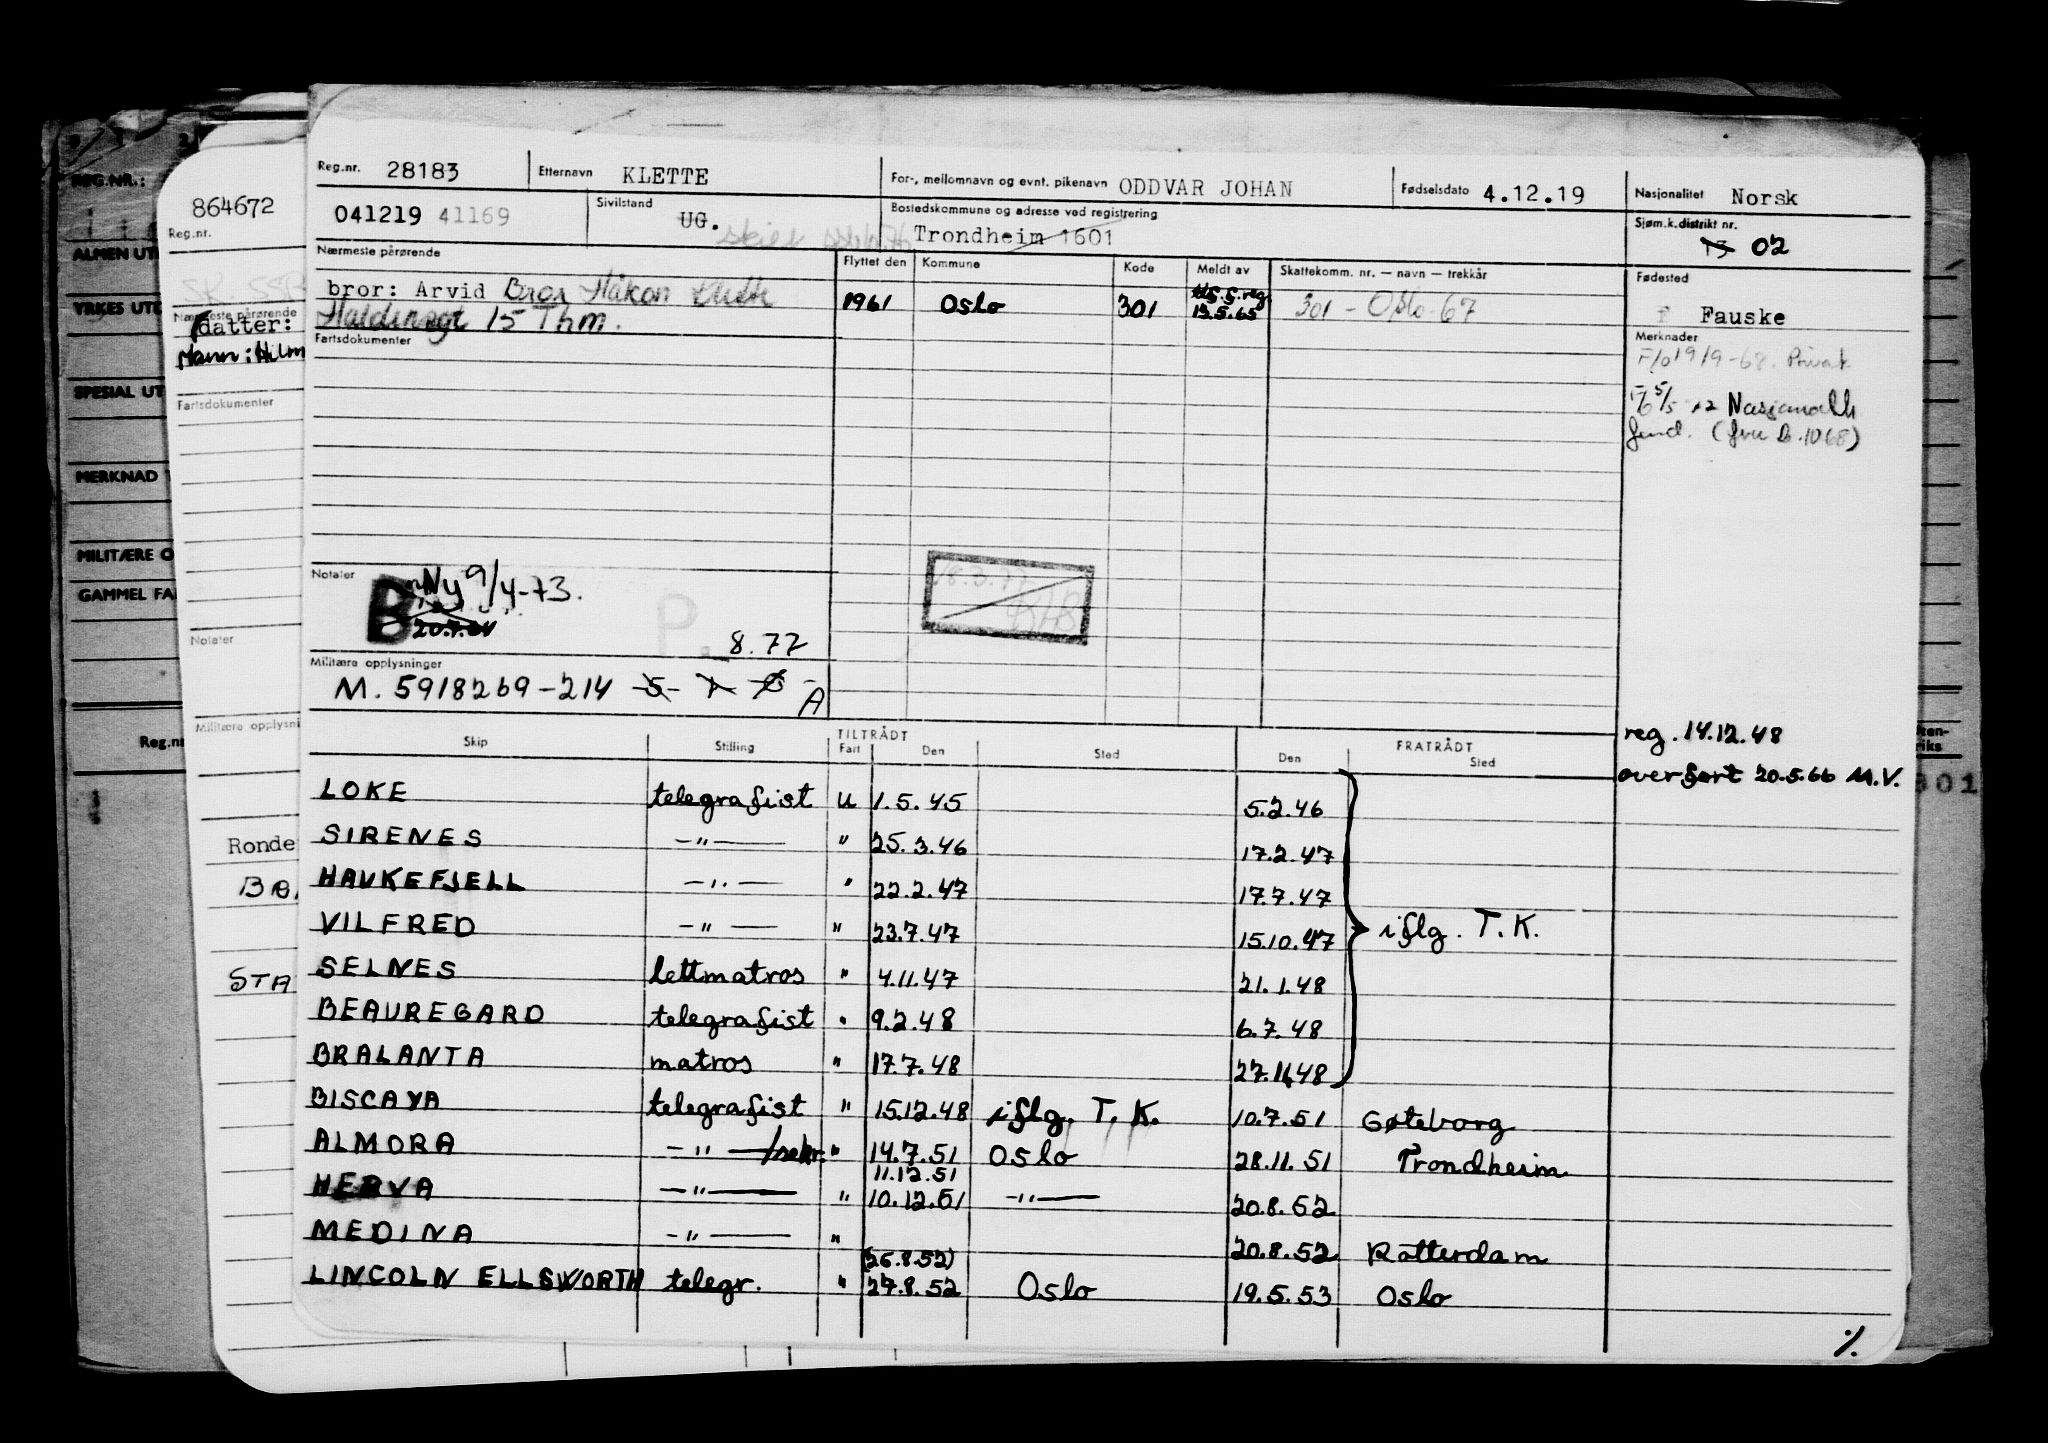 Reg.nr. 28183 Etternavn KLETTE For-, mellomnavn og evnt. pikenavn ODDVAR JOHAN Fødselsdato 4.12.19 Nasjonalitet Norsk
041219 41169 Sivilstand UG. Bostedskommune og adresse ved registrering Trondheim 1601 Sjøm.k.distrikt nr. 02
Nærmeste pårørende Flyttet den Kommune Kode Meldt av Skattekomm. nr. — navn — trekkår Fødested
bror: Arvid Bror Håkon Klette 1961 Oslo 301 13.5.65 301 - Oslo 67 Fauske
15 Thm.
Fartsdokumenter Merknader
F/o 19/9-68. Privat
Nasjonalh
(fvu B.1068)
Notater B Ny 9/4-73.
20.7.64
P. 8.77
Militære opplysninger
M. 5918269-214 -5- A
reg. 14.12.48
overført 20.5.66 M.V.
Skip Stilling TILTRÅDT Fart Den Sted FRATRÅDT Den Sted
LOKE telegrafist u 1.5.45 5.2.46
SIRENES -"- " 25.3.46 17.2.47
HAUKEFJELL -"- " 22.2.47 17.7.47
VILFRED -"- " 23.7.47 15.10.47 iflg. T.K.
SELNES lettmatros " 4.11.47 21.1.48
BEAUREGARD telegrafist " 9.2.48 6.7.48
BRALANTA matros " 17.7.48 27.11.48
BISCAYA telegrafist " 15.12.48 iflg. T.K. 10.7.51 Gøteborg
ALMORA -"-/sekr. " 14.7.51 Oslo 28.11.51 Trondheim
11.12.51
HERVA -"- " 10.12.51 -"- 20.8.52
MEDINA -"- " 20.8.52 Rotterdam
(26.8.52)
LINCOLN ELLSWORTH telegr. " 27.8.52 Oslo 19.5.53 Oslo
%
864672
Reg.nr.
Nærmeste pårørende
datter:
Mann: Hilm
Fartsdokumenter
Notater
Militære opplysni
Ronde
STA
REG.NR.:
ALMEN UT
YRKES UT
SPESIAL UT
MERKNAD
MILITÆRE O
GAMMEL FA
Reg.n
301